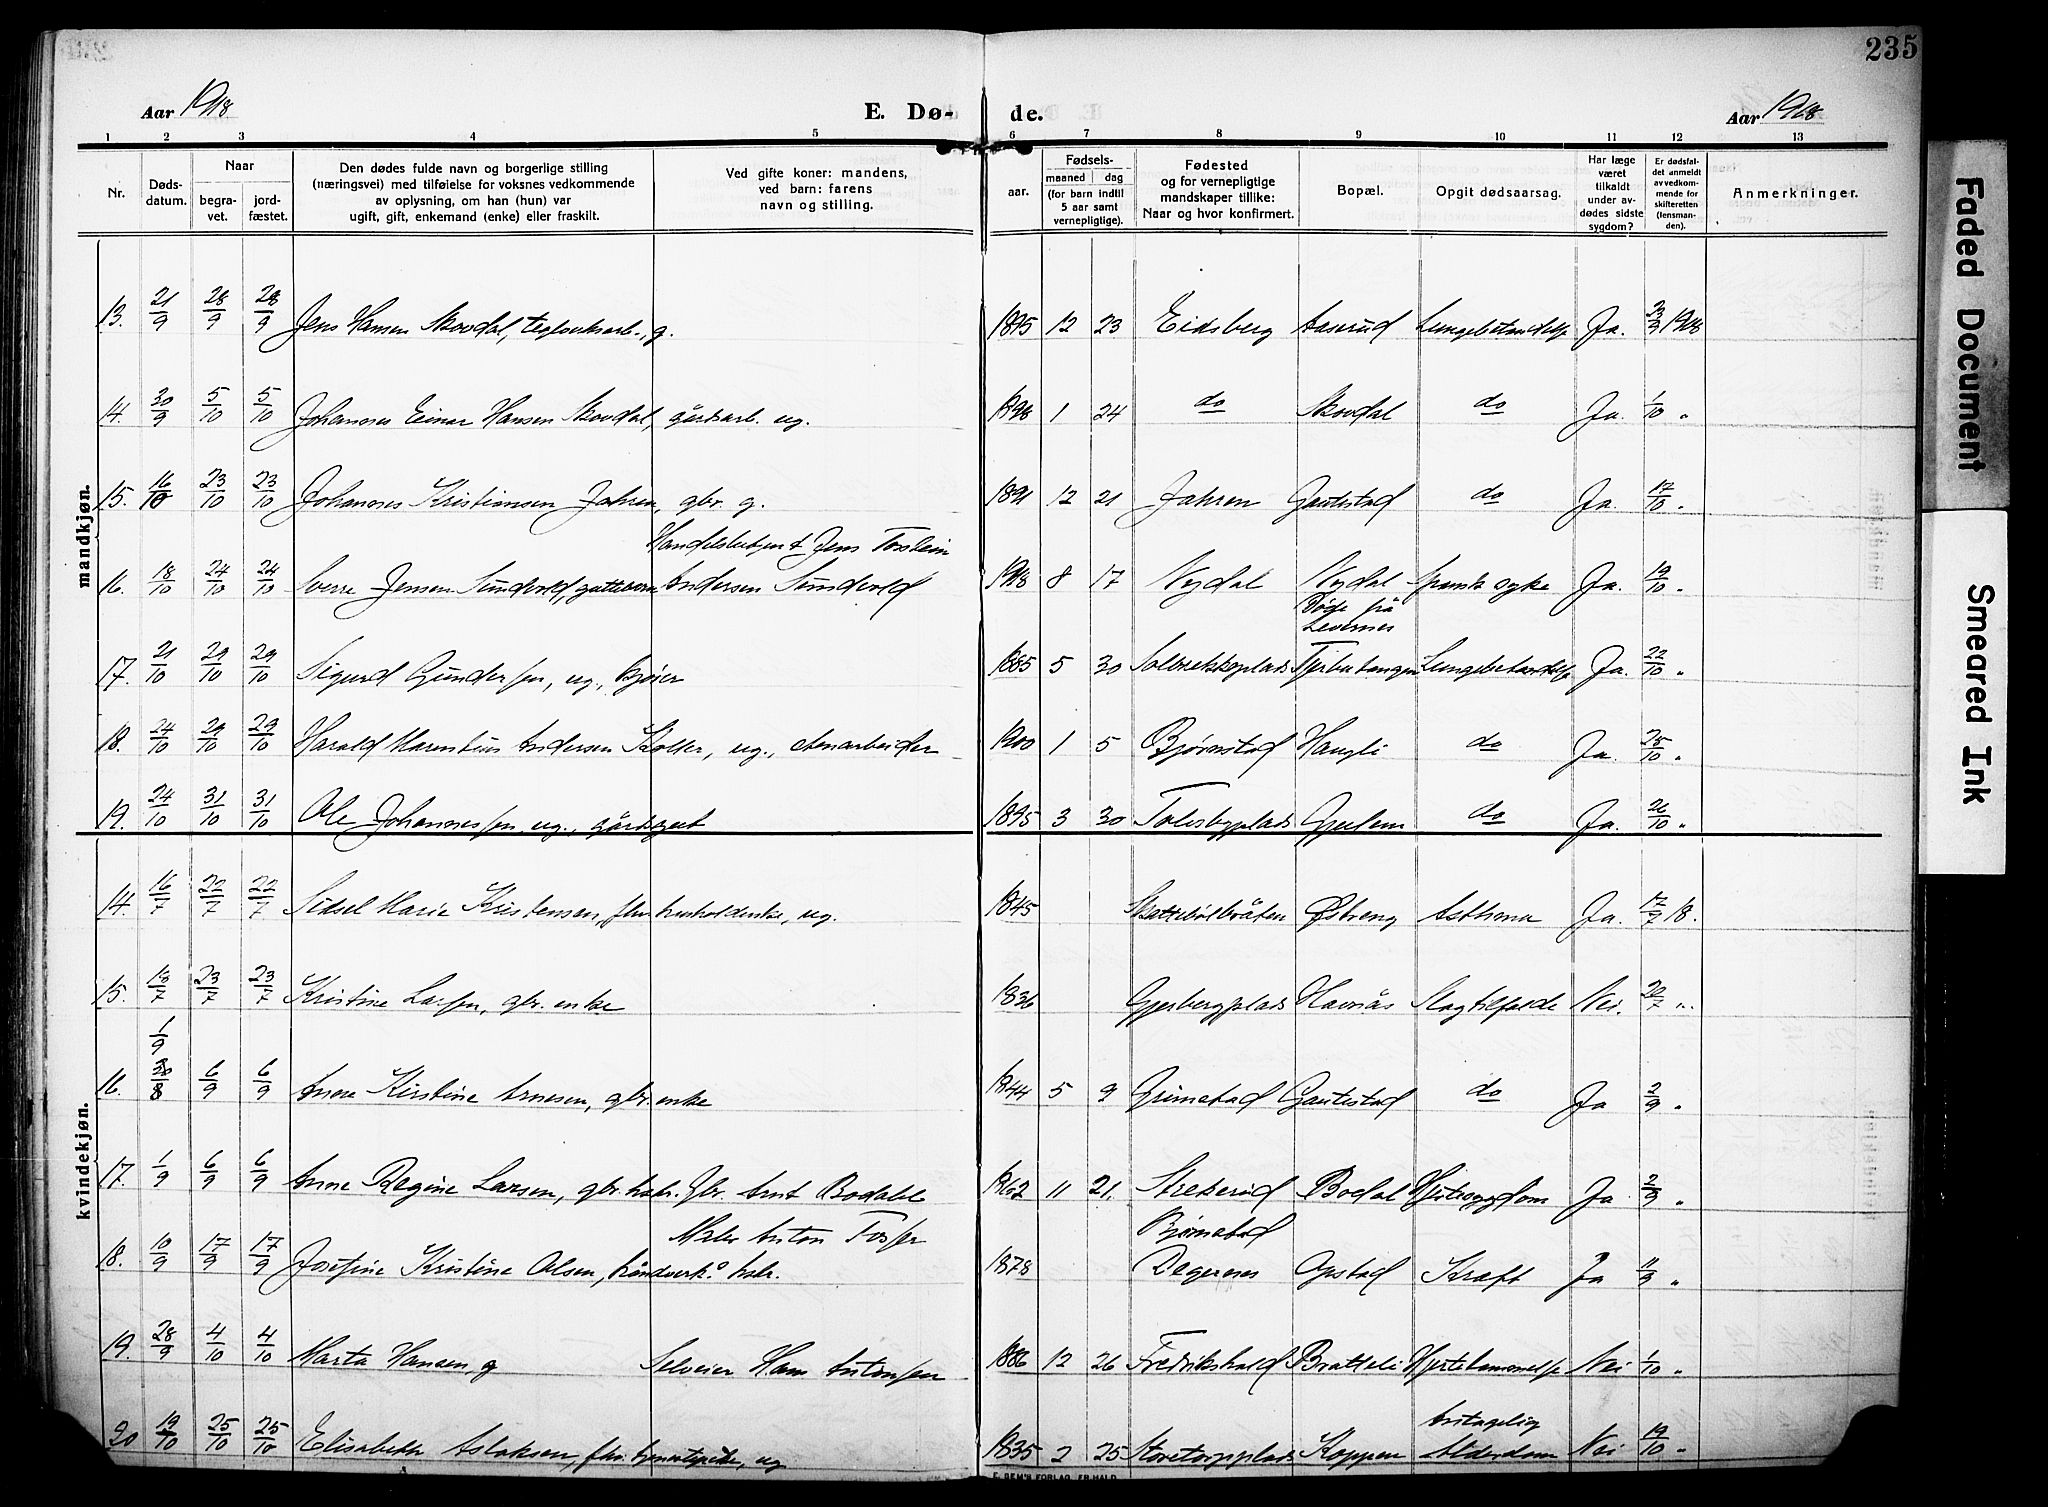 235
Aar 1918
E. Dø-
de.
Aar 1918
1 2 3 4 5 6 7 8 9 10 11 12 13
Nr.
Døds-
datum.
Naar
begra-
vet.
jord-
fæstet.
Den dødes fulde navn og borgerlige stilling
(næringsvei) med tilføielse for voksnes vedkommende
av oplysning, om han (hun) var
ugift, gift, enkemand (enke) eller fraskilt.
Ved gifte koner: mandens,
ved barn: farens
navn og stilling.
Fødsels-
aar.
maaned dag
(for barn indtil
5 aar samt
vernepligtige).
Fødested
og for vernepligtige
mandskaper tillike:
Naar og hvor konfirmert.
Bopæl.
Opgit dødsaarsag.
Har læge
været
tilkaldt
under av-
dødes sidste
sygdom?
Er dødsfal-
det anmeldt
av vedkom-
mende for
skifteretten
(lensman-
den).
Anmerkninger.
mandkjøn.
13. 21/9 28/9 28/9 Jens Hansen Skovdal, teglverksarb., g. 1895 12 23 Eidsberg Aaserud Lungebetændelse Ja. 23/9 1918
14. 30/9 5/10 5/10 Johannes Einar Hansen Skovdal, gårdsarb. ug. 1898 1 24 do Skovdal do Ja. 1/10 "
15. 16/10 23/10 23/10 Johannes Kristiansen Jahren, gbr. g. 1891 12 21 Jahren Gautestad do Ja. 17/10 "
Handelsbetjent Jens Torstein
16. 18/10 24/10 24/10 Sverre Jensen Sundvold, guttebarn Andersen Sundvold 1918 8 17 Nydal Nydal spansk syke Ja. 19/10 "
Døde på
Levernes
17. 21/10 29/10 29/10 Sigurd Gundersen, ug., 1885 5 30 Solbrekkeplads Lungebetændelse Ja. 22/10 "
18. 24/10 29/10 29/10 Harald Marentius Andersen ug., 1900 1 5 Bjørnstad Haugli do Ja. 25/10 "
19. 24/10 31/10 31/10 Ole Johannessen ug., gårdsgut 1895 3 30 do Ja. 26/10 "
kvindekjøn.
14. 16/7 22/7 22/7 Sidsel Marie Kristensen, fhv. husholderske, ug. 1845 Skattebølbråten Østreng Asthma Ja. 17/7 18.
15. 18/7 23/7 23/7 Kristine Larsen, gbr. enke 1836 Gjerbergplads Havnås Slagtilfælde Nei. 20/7 "
1/9
16. 30/8 6/9 6/9 Anne Kirstine Arnesen, gbr. enke 1844 5 9 Grimstad Gautestad do Ja 2/9 "
17. 1/9 6/9 6/9 Anne Regine Larsen, gbr. kone. Gbr. Arnt Bodahl 1862 11 21. Strekerud Bodal Hjertesygdom Ja 2/9 "
Maler Anton
Bjørnstad
18. 10/9 17/9 17/9 Josefine Kristine Olsen, håndverk. kone. 1878 Degernes Opstad Kræft Ja 11/9 "
19. 28/9 4/10 4/10 Marta Hansen, g Selveier Hans Antonsen 1886 12 26 Fredrikshald Bratteli Hjertelammelse Nei 1/10 "
Antagelig
20 19/10 25/10 25/10 Elisabeth Aslaksen, fhv. tjenestepike, ug 1835 2 25 Storetorpplads Koppen Alderdom Nei 19/10 "
E. SEM'S FORLAG, FR.HALD
Faded Document
Smeared Ink